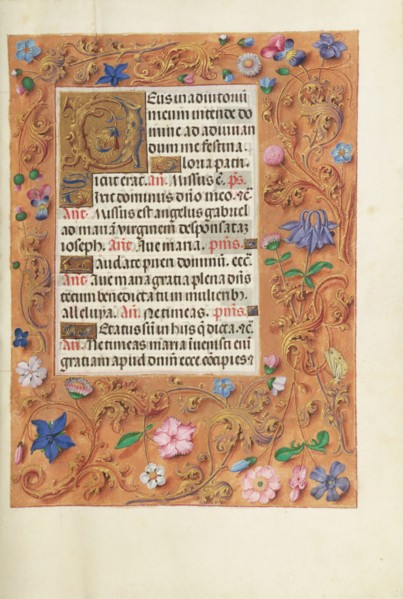 Deus in adiutoriū
meum intende do
mine ad adiuuan
dum me festina.
Gloria patri.
Sicut erat. añ. Missus ē. ps̄.
Dixit dominus dño meo. ⁊c̄
Anē. Missus est angelus gabriel
ad mariā virginem desponsatā
ioseph. Anē. Aue maria. psm̄s.
Laudate pueri dominū. ⁊c̄
Anē. Aue maria gratia plena dñs
tecum benedicta tu in mulierib3
alleluya. Añ. Ne timeas. psm̄s.
Letatus sū in hiis q̄ dicta. ⁊c̄
Añ. Ne timeas maria inuenisti eni
gratiam apud dn̄m ecce cōcipies ⁊